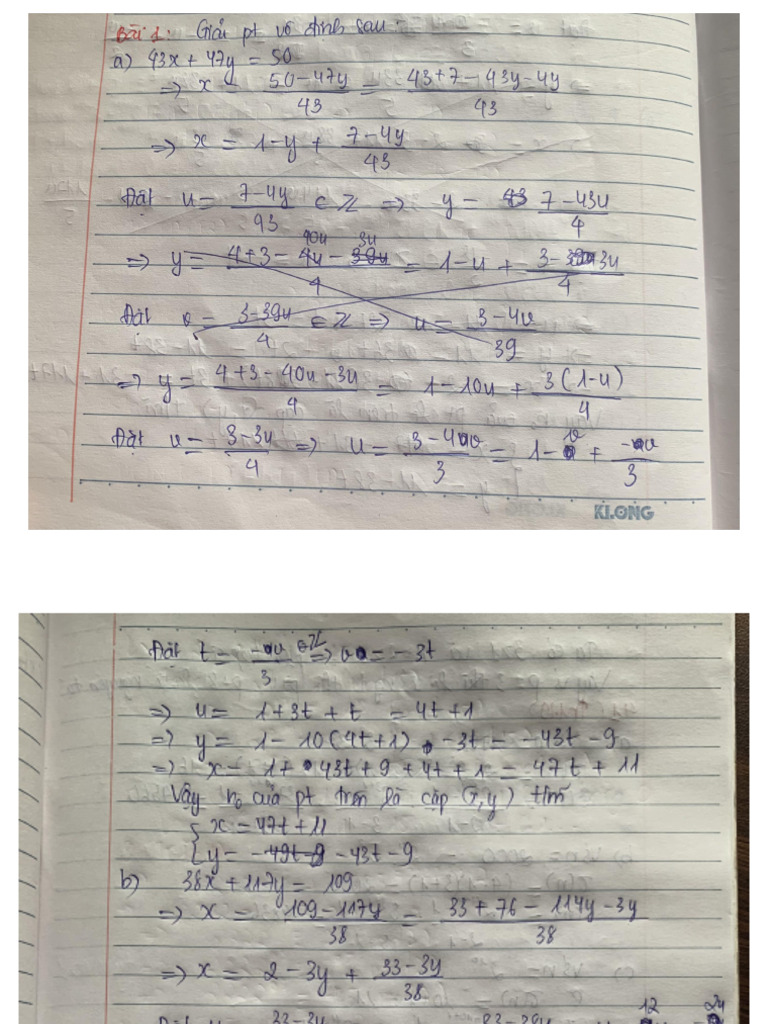 Bài 1: Giải pt vô định sau:
a) 43x + 47y = 50
=> x = (50 - 47y)/43 = (43 + 7 - 43y - 4y)/43 =
=> x = 1 - y + (7 - 4y)/43
Đặt u = (7 - 4y)/93 ∈ Z => y = (7 - 43u)/4
=> y = (4 + 3 - 40u - 3u)/4 = 1 - u + (3 - 3u)/4
Đặt v = (3 - 39u)/4 ∈ Z => u = (3 - 4v)/39
=> y = (4 + 3 - 40u - 3u)/4 = 1 - 10u + 3(1 - u)/4
Đặt v = (3 - 3u)/4 => u = (3 - 4v)/3 = 1 - v + (-v)/3
KLONG
Đặt t = (-v)/3 ∈ Z => v = -3t
=> u = 1 + 3t + t = 4t + 1
=> y = 1 - 10(4t + 1) - 3t = -43t - 9
=> x = 1 + 43t + 9 + 4t + 1 = 47t + 11
Vậy no của pt trên là cặp (x, y) tm
{ x = 47t + 11
{ y = -43t - 9
b) 38x + 117y = 109
=> x = (109 - 117y)/38 = (33 + 76 - 114y - 3y)/38
=> x = 2 - 3y + (33 - 3y)/38